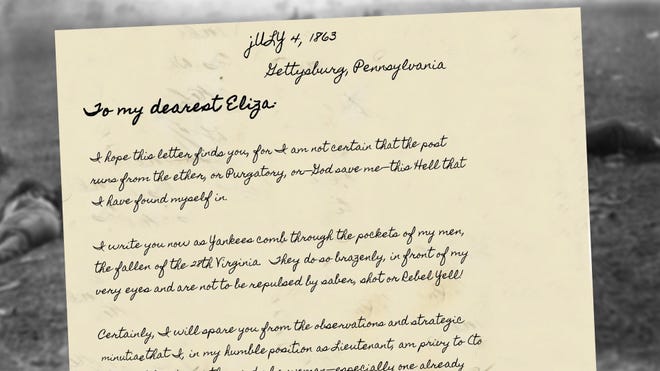 jULY 4, 1863
Gettysburg, Pennsylvania
To my dearest Eliza:
I hope this letter finds you, for I am not certain that the post
runs from the ether, or Purgatory, or—God save me—this Hell that
I have found myself in.
I write you now as Yankees comb through the pockets of my men,
the fallen of the 28th Virginia. They do so brazenly, in front of my
very eyes and are not to be repulsed by saber, shot or Rebel Yell!
Certainly, I will spare you from the observations and strategic
minutiaethat I, in my humble position as Lieutenant, am privy to (to
woman—especially one already